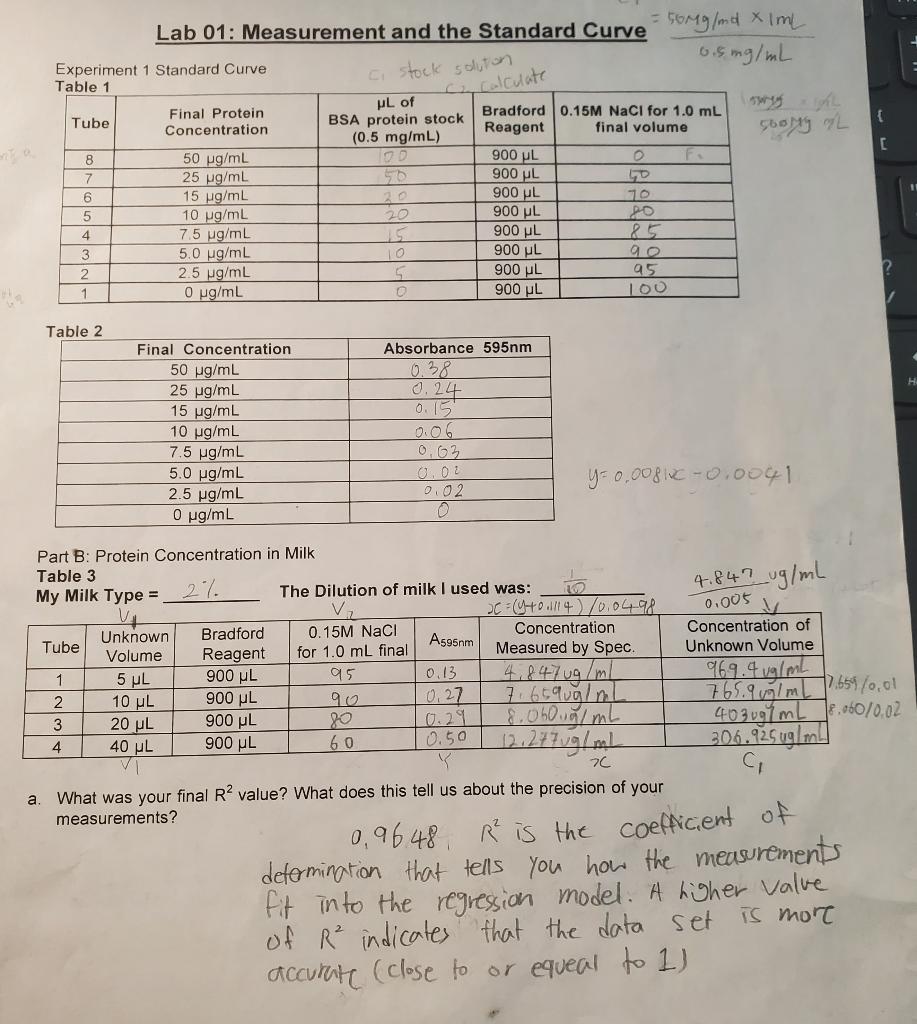 = 50Mg/md x 1mL
Lab 01: Measurement and the Standard Curve
0.5 mg/mL
Experiment 1 Standard Curve
C1 stock solution
Table 1
C2 calculate
Tube Final Protein Concentration µL of BSA protein stock (0.5 mg/mL) Bradford Reagent 0.15M NaCl for 1.0 mL final volume
500Mg
8 50 µg/mL 100 900 µL 0
7 25 µg/mL 50 900 µL 50
6 15 µg/mL 30 900 µL 70
5 10 µg/mL 20 900 µL 80
4 7.5 µg/mL 15 900 µL 85
3 5.0 µg/mL 10 900 µL 90
2 2.5 µg/mL 5 900 µL 95
1 0 µg/mL 0 900 µL 100
Table 2
Final Concentration Absorbance 595nm
50 µg/mL 0.38
25 µg/mL 0.24
15 µg/mL 0.15
10 µg/mL 0.06
7.5 µg/mL 0.03
5.0 µg/mL 0.02
2.5 µg/mL 0.02
0 µg/mL 0
y= 0.0081x -0.0041
Part B: Protein Concentration in Milk
Table 3
My Milk Type = 2% The Dilution of milk I used was: 1/10
4.847 ug/mL
0.005
V1 V2 x=(y+0.1114)/0.0498
Tube Unknown Volume Bradford Reagent 0.15M NaCl for 1.0 mL final A595nm Concentration Measured by Spec. Concentration of Unknown Volume
1 5 µL 900 µL 95 0.13 4.847ug/ml 969.4ug/ml
2 10 µL 900 µL 90 0.27 7.659ug/mL 765.9ug/mL 7.659/0.01
3 20 µL 900 µL 80 0.29 8.060ug/mL 403ug/mL 8.060/0.02
4 40 µL 900 µL 60 0.50 12.277ug/mL 306.925ug/mL
V1 Y x C1
a. What was your final R² value? What does this tell us about the precision of your
measurements?
0.9648, R² is the coefficient of
determination that tells you how the measurements
fit into the regression model. A higher value
of R² indicates that the data set is more
accurate (close to or equeal to 1)